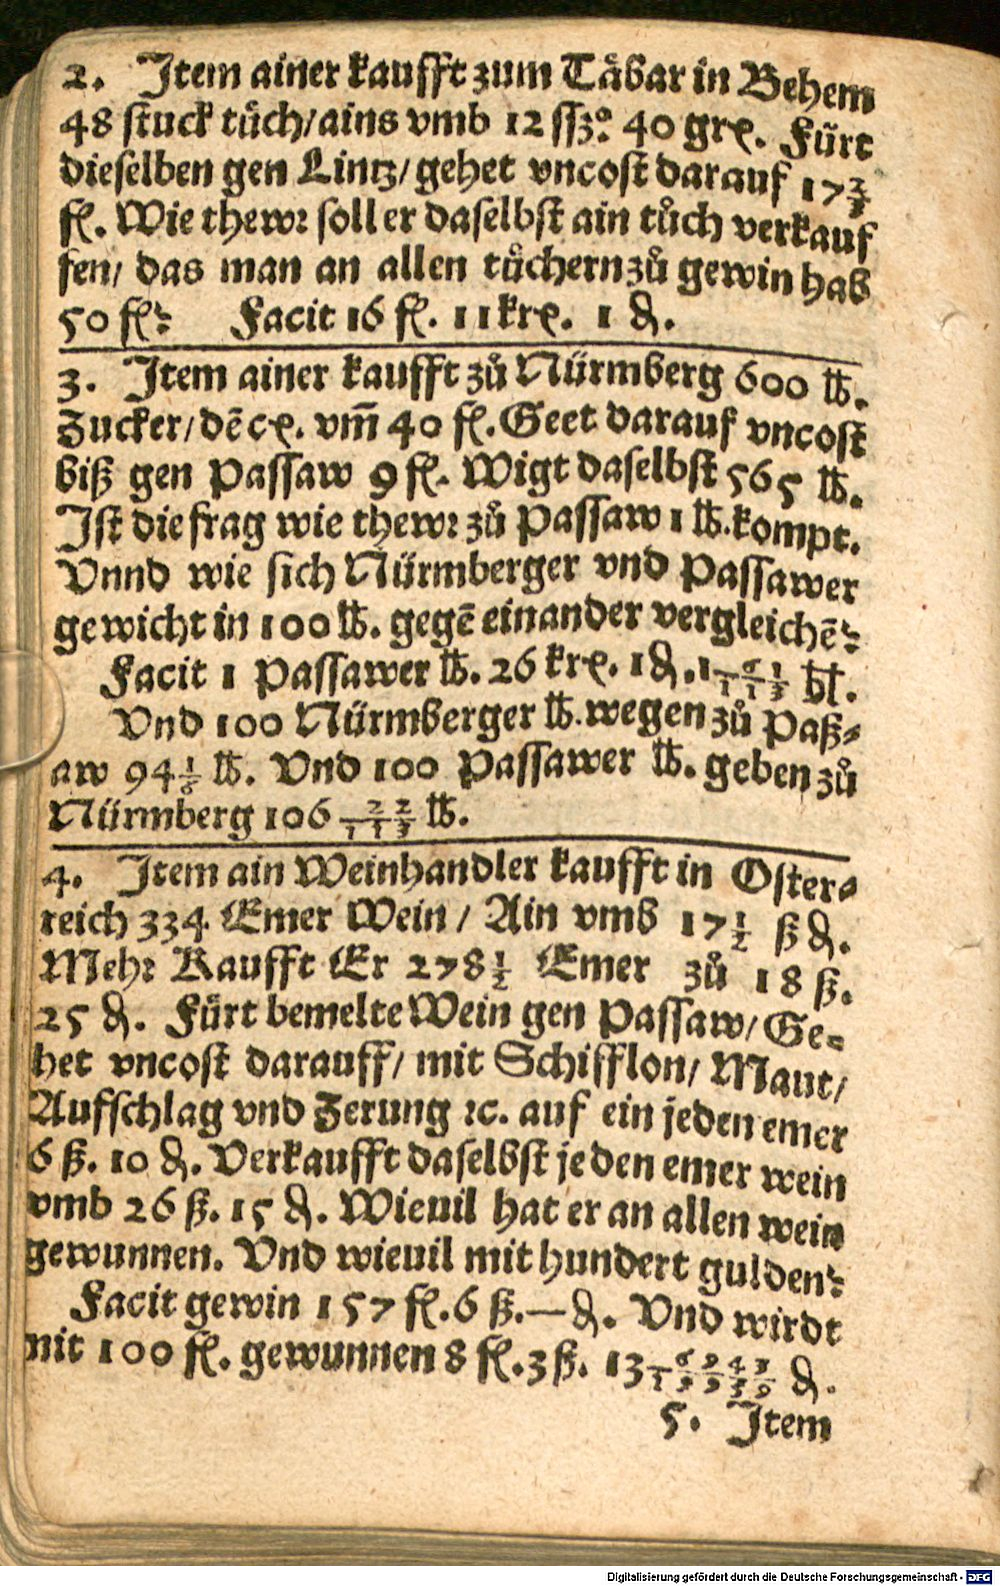 2. Item ainer kaufft zum Tåbar in Behem
48 stuck tůch/ains vmb 12 ſſʒ° 40 grꝭ. Fürt
dieselben gen Lintz/ gehet vncost darauf 17 2/3
fl. Wie thewꝛ soll er daselbst ain tůch verkauf
fen/ das man an allen tůchern zů gewin hab
50 fl: Facit 16 fl. 11 krꝭ. 1 ₰.
3. Item ainer kaufft zů Nürmberg 600 ℔.
Zucker/dē cꝭ. vm̄ 40 fl. Geet darauf vncost
biß gen Passaw 9 fl. Wigt daselbst 565 ℔.
Ist die frag wie thewꝛ zů Passaw 1 ℔. kompt.
Vnnd wie sich Nürmberger vnd Passawer
gewicht in 100 ℔. gegē einander vergleichē:
Facit 1 Passawer ℔. 26 krꝭ. 1 ₰. 1 61/113 hl.
Vnd 100 Nürmberger ℔. wegen zů Paß⸗
aw 94 1/6 ℔. Vnd 100 Passawer ℔. geben zů
Nürmberg 106 22/113 ℔.
4. Item ain Weinhandler kaufft in Oster⸗
reich 334 Emer Wein / Ain vmb 17 1/2 ß ₰.
Mehꝛ Kaufft Er 278 1/2 Emer zů 18 ß.
25 ₰. Fürt bemelte Wein gen Passaw/ Ge⸗
het vncost darauff/ mit Schifflon/ Maut/
Aufschlag vnd Zerung ꝛc. auf ein jeden emer
6 ß. 10 ₰. Verkaufft daselbst jeden emer wein
vmb 26 ß. 15 ₰. Wieuil hat er an allen wein
gewunnen. Vnd wieuil mit hundert gulden:
Facit gewin 157 fl. 6 ß. — ₰. Vnd wirdt
mit 100 fl. gewunnen 8 fl. 3 ß. 13 ₰.
5. Item
Digitalisierung gefördert durch die Deutsche Forschungsgemeinschaft - DFG